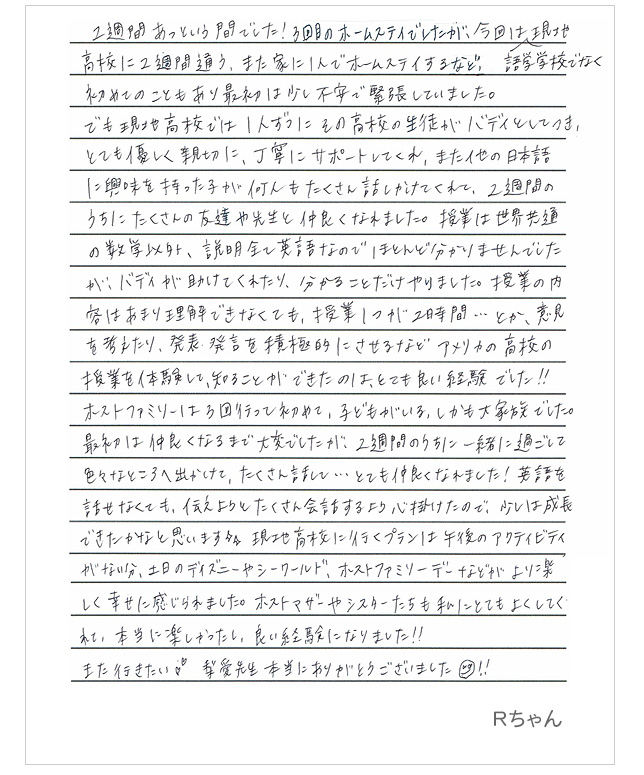 2週間あっという間でした！3回目のホームステイでしたが、今回は現地
高校に2週間通う、また家に1人でホームステイするなど、語学学校でなく
初めてのこともあり最初は少し不安で緊張していました。
でも現地高校では1人ずつにその高校の生徒がバディとしてつき、
とても優しく親切に、丁寧にサポートしてくれ、また他の日本語
に興味を持った子が何人もたくさん話しかけてくれて、2週間の
うちにたくさんの友達や先生と仲良くなれました。授業は世界共通
の数学以外、説明全て英語なのでほとんど分かりませんでした
が、バディが助けてくれたり、分かることだけやりました。授業の内
容はあまり理解できなくても、授業1つが2時間…とか、意見
を考えたり、発表・発言を積極的にさせるなどアメリカの高校の
授業を体験して、知ることができたのは、とても良い経験でした!!
ホストファミリーは3回行って初めて、子どもがいる、しかも大家族でした。
最初は仲良くなるまで大変でしたが、2週間のうちに一緒に過ごして
色々なところへ出かけて、たくさん話して…とても仲良くなれました！英語を
話せなくても、伝えようとたくさん会話するよう心掛けたので、少しは成長
できたかなと思います 現地高校に行くプランは午後のアクティビティ
がない分、土日のディズニーやシーワールド、ホストファミリーデーなどがより楽
しく幸せに感じられました。ホストマザーやシスターたちも私にとてもよくしてく
れて、本当に楽しかったし、良い経験になりました!!
また行きたい 梨愛先生本当にありがとうございました!!
Rちゃん